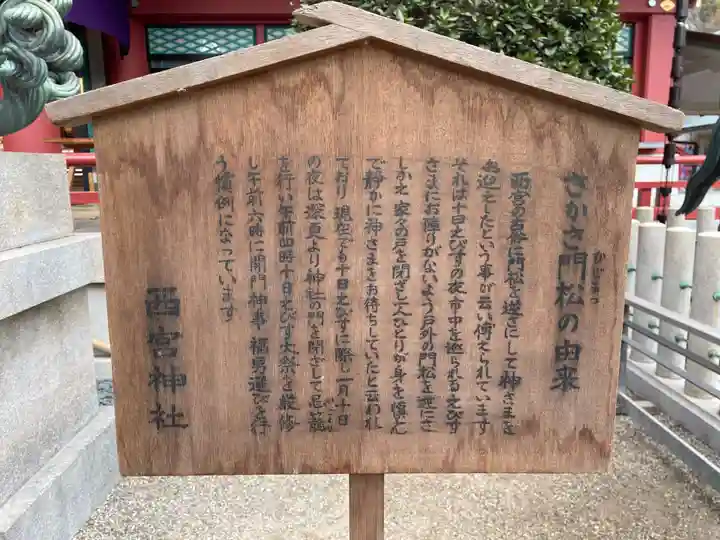 さかさ門松の由来
かどまつ
西宮の古俗に門松を逆さにして神さまを
お迎えしたという事が云い傳えられています
それは十日えびすの夜市中を巡られるえびす
さまにお障りがないよう戸外の門松を逆にさ
しかえ家々の戸を閉ざし一人ひとりが身を慎しん
で静かに神さまをお待ちしていたと云われ
ており 現在でも十日えびすに際し一月十日
の夜は深更より神社の門を閉ざして忌籠
を行い午前四時十日えびす大祭を厳修
し午前六時に開門神事 福男選びを行
う慣例になっています
西宮神社